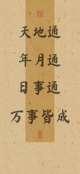 天地通
年月通
日事通
万事皆成